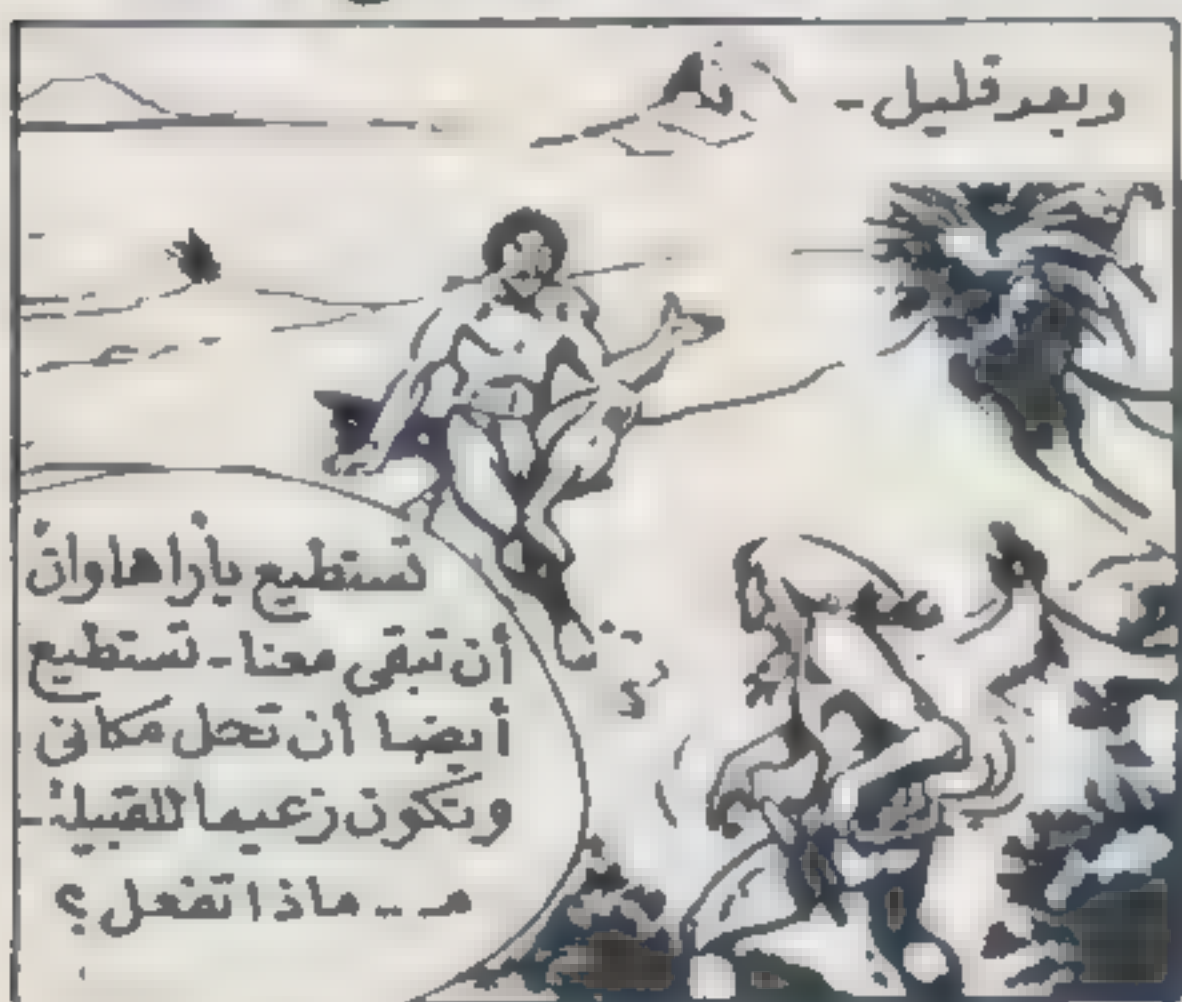 وبعد قليل -
تستطيع يا راهاوان
أن تبقى معنا - تستطيع
أيضا أن تحل مكانى
وتكون زعيما للقبيلة -
مـ -- ماذا تفعل ؟